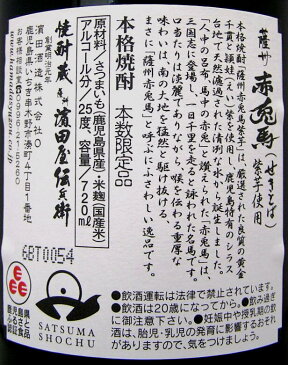 薩州 赤兎馬(せきとば)
紫芋使用
本格焼酎「薩州赤兎馬紫芋」は、厳選された良質の黄金
千貫と頴娃(えい)紫を使用し、鹿児島特有のシラス
台地で天然濾過された清冽な水から誕生しました。
「人中の呂布、馬中の赤兎」と讃えられた「赤兎馬」は、
三国志に登場し、一日千里を走ると詠われた名馬です。
口当たりは淡麗でありながら、喉を伝わる重厚な
味わいは、南の大地を猛然と駆け抜ける、
まさに「薩州赤兎馬」と呼ぶにふさわしい逸品です。
本格焼酎 本数限定品
原材料/さつまいも(鹿児島県産)、米麹(国産米)
アルコール分/25度、容量/720ml
焼酎蔵 薩州 濵田屋伝兵衛
創業明治元年
濵田酒造株式会社
鹿児島県いちき串木野市湊町4丁目1番地
お客様相談室 0996215260
www.hamadasyuzou.co.jp
6BT0054
鹿児島県
ふるさと
認証食品
SATSUMA
SHOCHU
●飲酒運転は法律で禁止されています。
●飲酒は20歳になってから。●飲み過ぎ
に御注意下さい。●妊娠中や授乳期の飲
酒は、胎児・乳児の発育に影響するおそれ
がありますので、気をつけましょう。